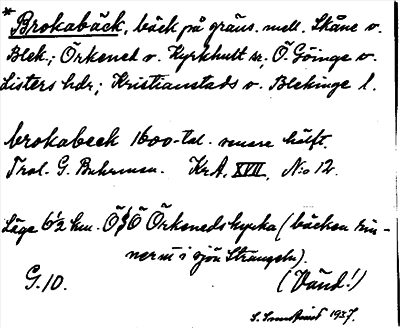 *Brokabäck, bäck på gräns. mell. Skåne o.
Blek.; Örkened o. Kyrkhult sr, Ö. Göinge o.
Listers hdr; Kristianstads o. Blekinge l.
brokabeck 1600-tal. senare hälft.
Trol. G. Buhrman. KrA, XVII, N:o 12.
Läge 6½ km. ÖSÖ Örkeneds kyrka (bäcken rin-
ner in i sjön Strängeln).
G. 10. (Vänd!)
1937.